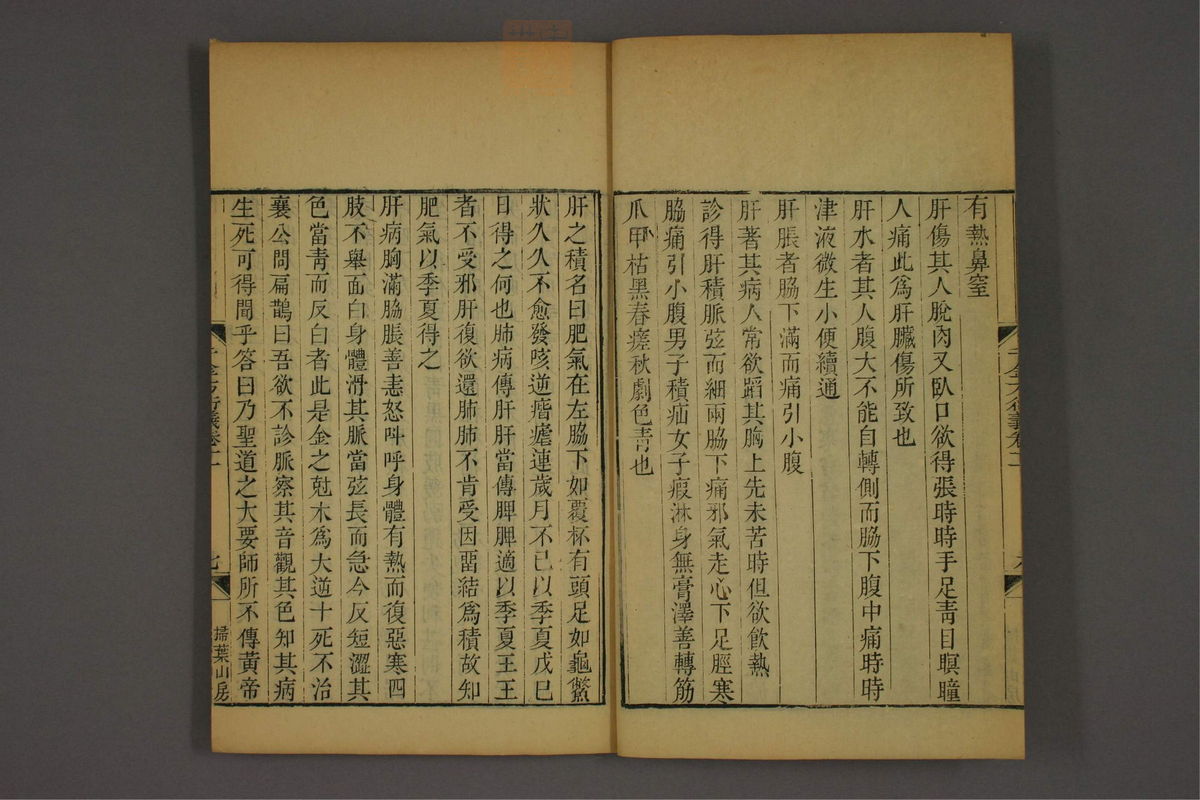 有熱鼻窒
肝傷其人脫肉又臥口欲得張時時手足青目瞑瞳
人痛此爲肝臟傷所致也
肝水者其人腹大不能自轉側而脇下腹中痛時時
津液微生小便續通
肝脹者脇下滿而痛引小腹
肝著其病人常欲蹈其胸上先未苦時但欲飲熱
診得肝積脈弦而細兩脇下痛邪氣走心下足脛寒
脇痛引小腹男子積疝女子瘕淋身無膏澤善轉筋
爪甲枯黑春瘥秋劇色青也
肝之積名曰肥氣在左脇下如覆杯有頭足如龜鱉
狀久久不愈發咳逆㾬瘧連歲月不已以季夏戊巳
日得之何也肺病傳肝肝當傳脾脾適以季夏王王
者不受邪肝復欲還肺肺不肯受因留結爲積故知
肥氣以季夏得之
肝病胸滿脇脹善恚怒呌呼身體有熱而復惡寒四
肢不舉面白身體滑其脈當弦長而急今反短澀其
色當青而反白者此是金之尅木爲大逆十死不治
襄公問扁鵲曰吾欲不診脈察其音觀其色知其病
生死可得聞乎答曰乃聖道之大要師所不傳黃帝
七
掃葉山房